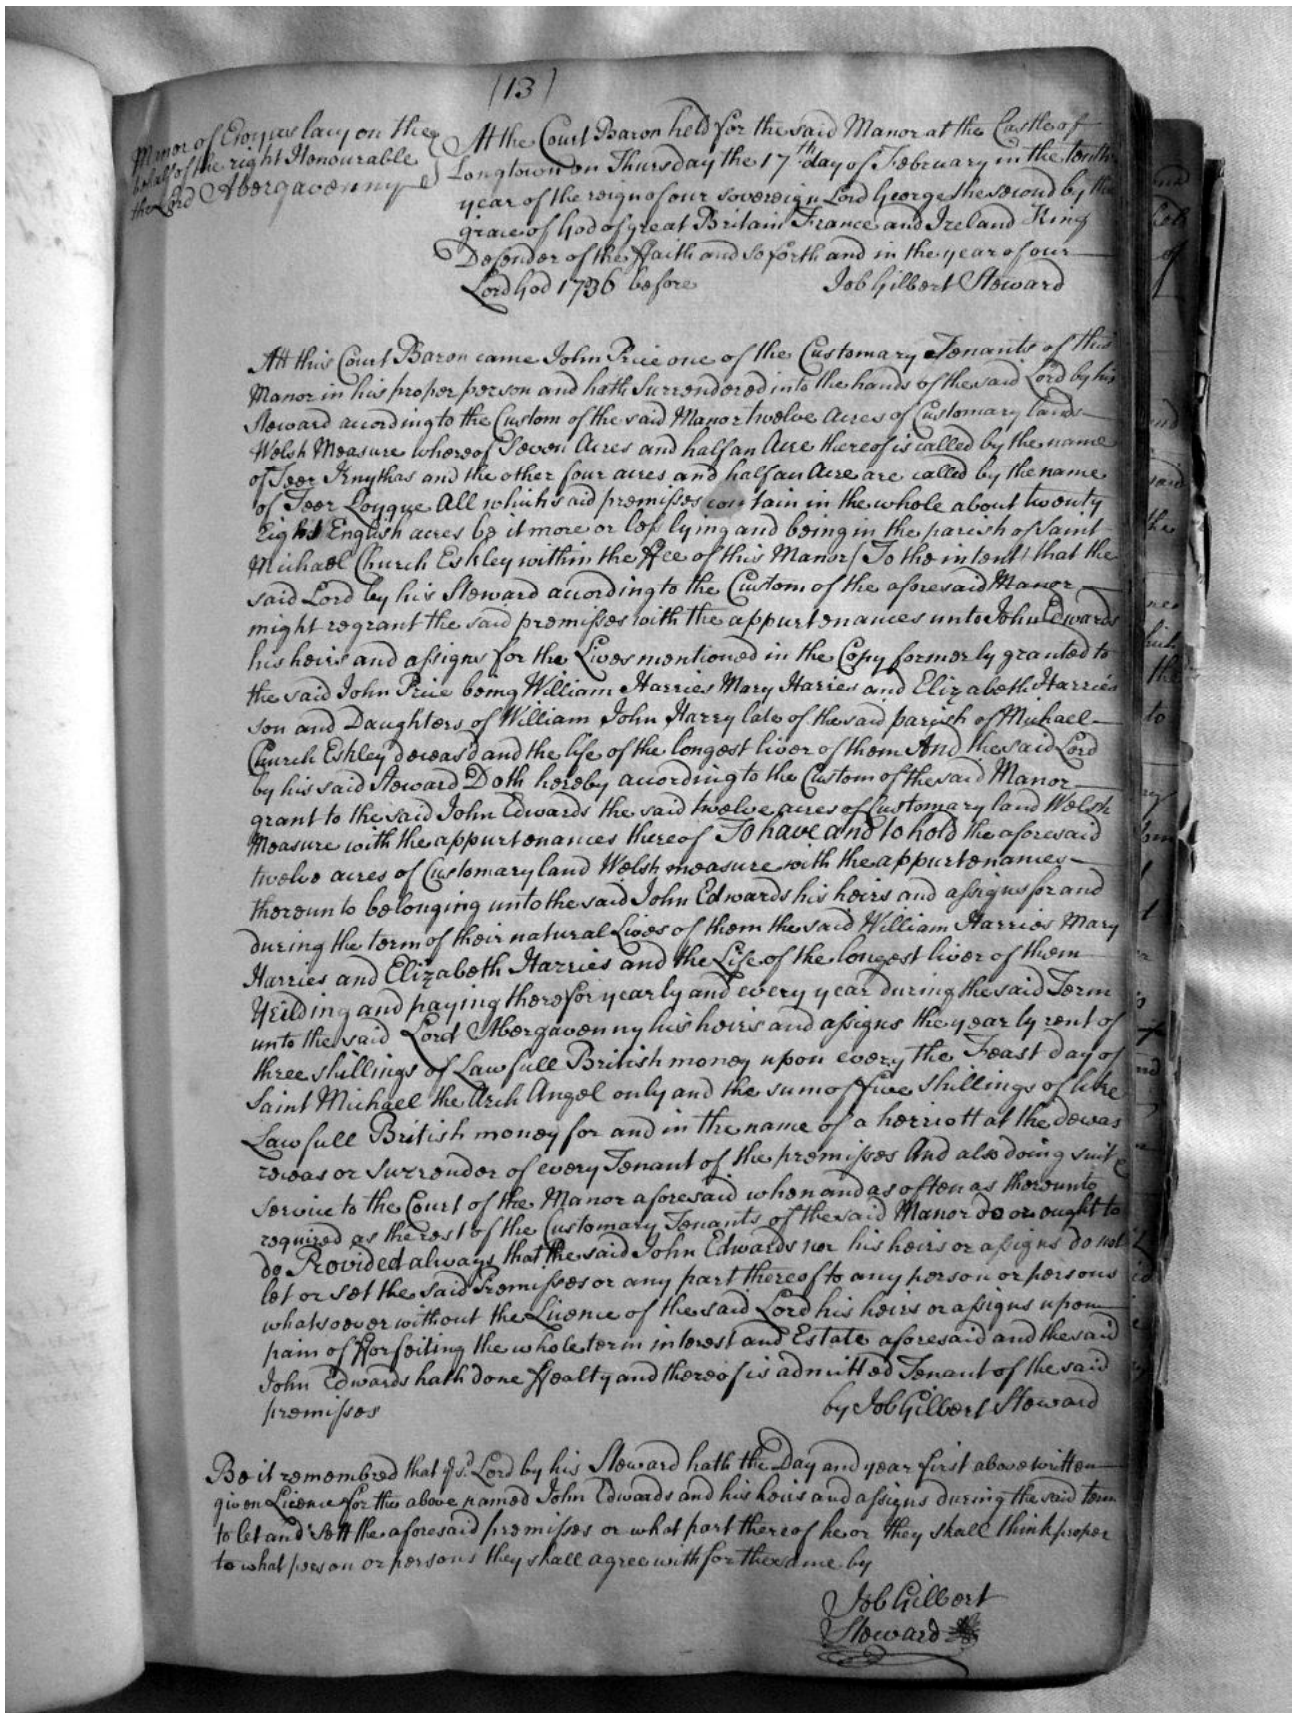 (13)
Manor of Ewyas lacy on the
behalf of the right Honourable
the Lord Abergavenny
At the Court Baron held for the said Manor at the Castle of
Longtown on Thursday the 17th day of February in the tenth
year of the reign of our sovereign Lord George the second by the
grace of God of great Britain France and Ireland King
Defender of the ffaith and so forth and in the year of our
Lord God 1736 before Job Gilbert Steward
Att this Court Baron came John Price one of the Customary Tenants of this
Manor in his proper person and hath Surrendered into the hands of the said Lord by his
Steward according to the Custom of the said Manor twelve Acres of Customary lands
Welsh Measure whereof Seven Acres and half an Acre thereof is called by the name
of Teer and the other four acres and half an Acre are called by the name
of Teer All which said premisses contain in the whole about twenty
Eight English acres be it more or less lying and being in the parish of Saint
Michael Church Eskley within the ffee of this Manor (To the intent that the
said Lord by his Steward according to the Custom of the aforesaid Manor
might regrant the said premisses with the appurtenances unto John Edwards
his heirs and assigns for the Lives mentioned in the Copy formerly granted to
the said John Price being William Harries Mary Harries and Elizabeth Harries
son and Daughters of William John Harry late of the said parish of Michael
Church Eskley deceas'd and the life of the longest liver of them And the said Lord
by his said Steward Doth hereby according to the Custom of the said Manor
grant to the said John Edwards the said twelve acres of Customary land Welsh
Measure with the appurtenances thereof To have and to hold the aforesaid
twelve acres of Customary land Welsh measure with the appurtenances
thereunto belonging unto the said John Edwards his heirs and assigns for and
during the term of their natural Lives of them the said William Harries Mary
Harries and Elizabeth Harries and the Life of the longest liver of them
Yeilding and paying therefor yearly and every year during the said Term
unto the said Lord Abergavenny his heirs and assigns the yearly rent of
three shillings of Lawfull British money upon every the Feast day of
Saint Michael the Arch Angel only and the sum of five shillings of like
Lawfull British money for and in the name of a herriott at the deceas
or Surrender of every Tenant of the premisses And also doing suit &
service to the Court of the Manor aforesaid when and as often as thereunto
required as the rest of the Customary Tenants of the said Manor do or ought to
do Provided always that the said John Edwards nor his heirs or assigns do not
let or set the said Premisses or any part thereof to any person or persons
whatsoever without the Licence of the said Lord his heirs or assigns upon
pain of fforfeiting the whole term interest and Estate aforesaid and the said
John Edwards hath done ffealty and thereof is admitted Tenant of the said
premisses by Job Gilbert Steward
Be it remembred that ye sd. Lord by his Steward hath the Day and year first above written
given Licence for the above named John Edwards and his heirs and assigns during the said term
to let and sett the aforesaid premisses or what part thereof he or they shall think proper
to what person or persons they shall agree with for the same by
Job Gilbert
Steward